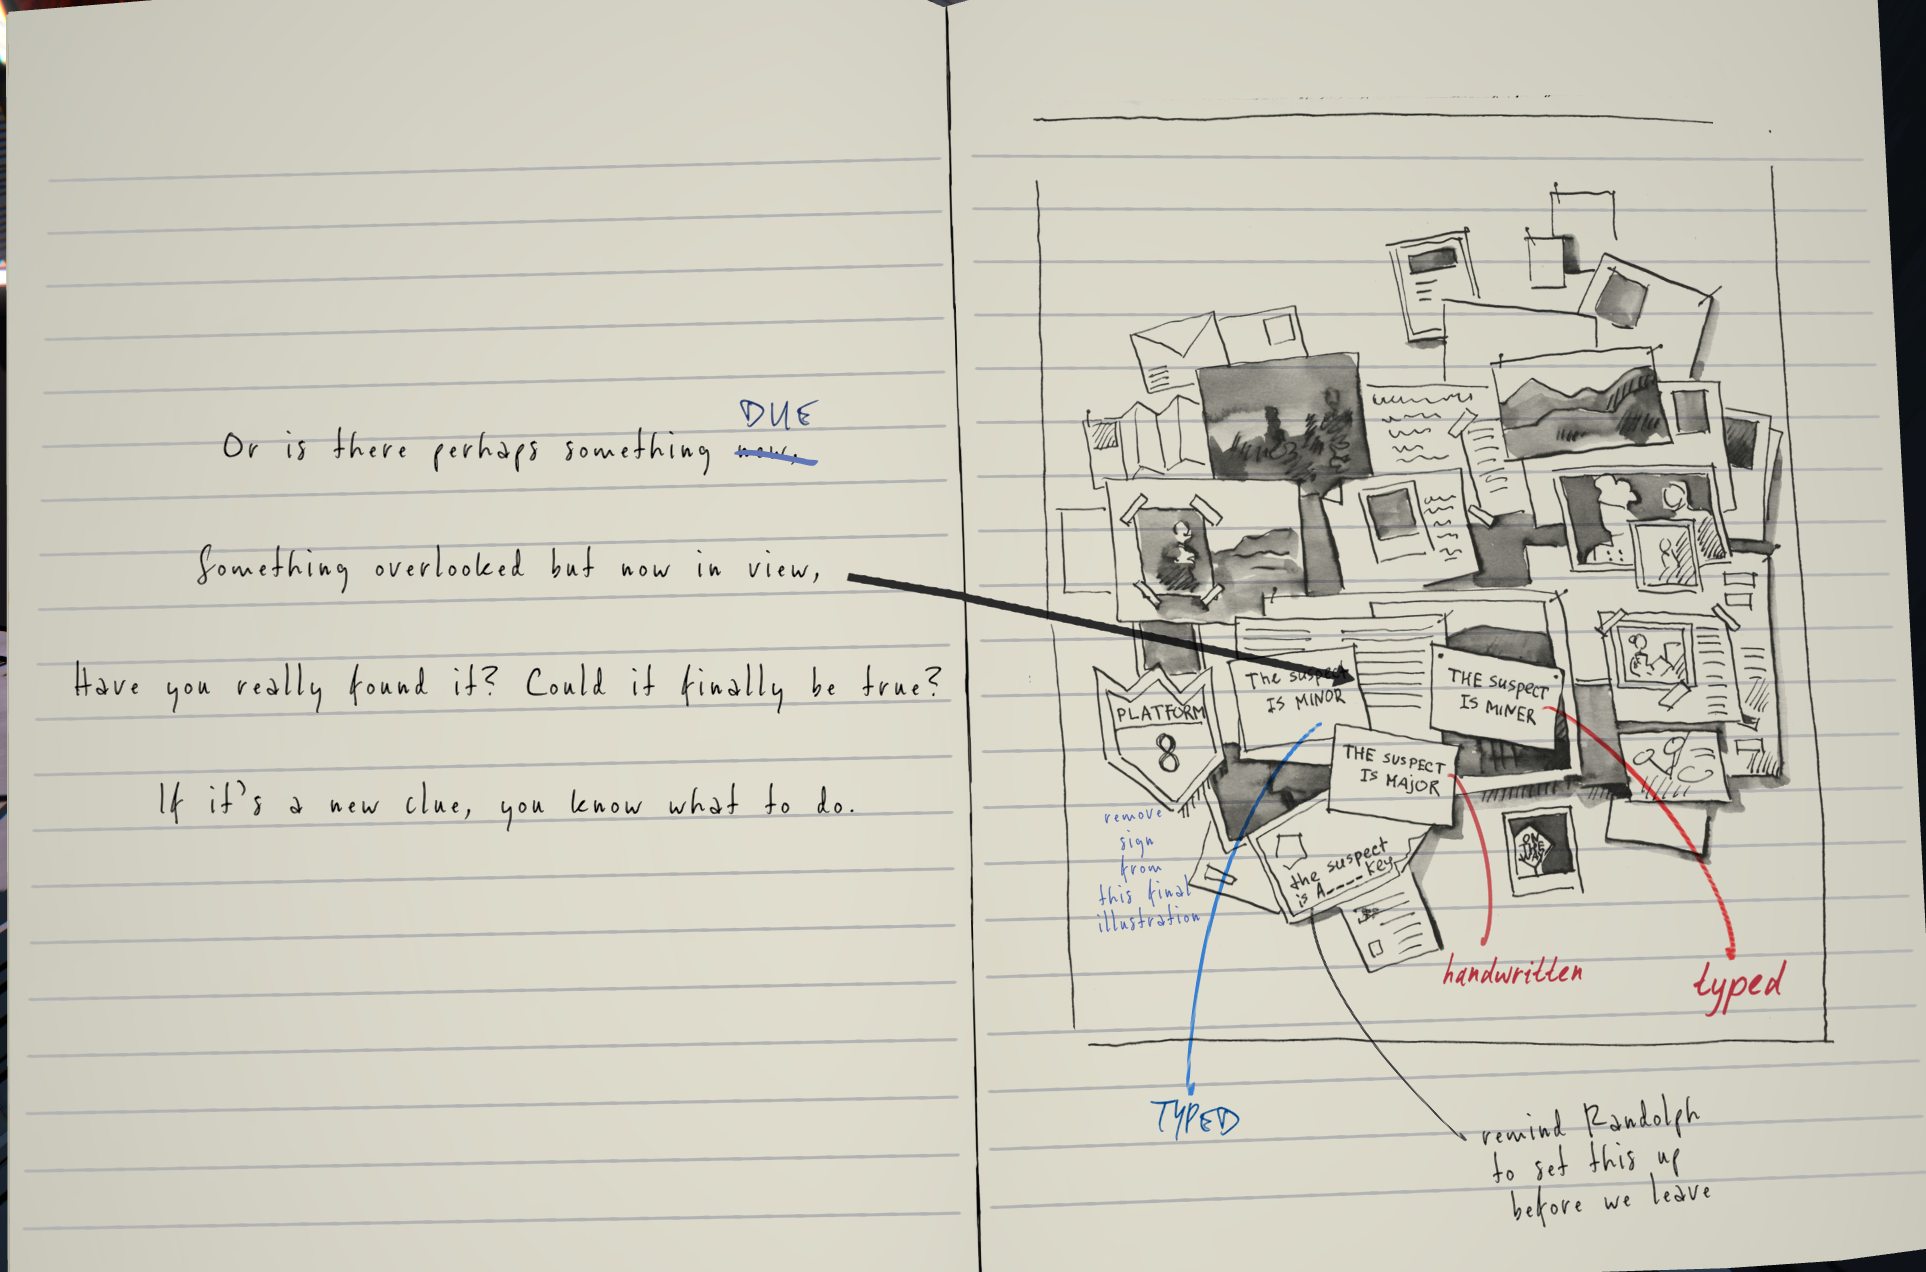 DUE
Or is there perhaps something new,
Something overlooked but now in view,
Have you really found it? Could it finally be true?
If it's a new clue, you know what to do.
PLATFORM
8
The suspect
IS MINOR
THE SUSPECT
IS MINER
THE SUSPECT
IS MAJOR
the suspect
is A_____ key
ON
THE
WAY
remove
sign
from
this final
illustration
handwritten
typed
TYPED
remind Randolph
to set this up
before we leave